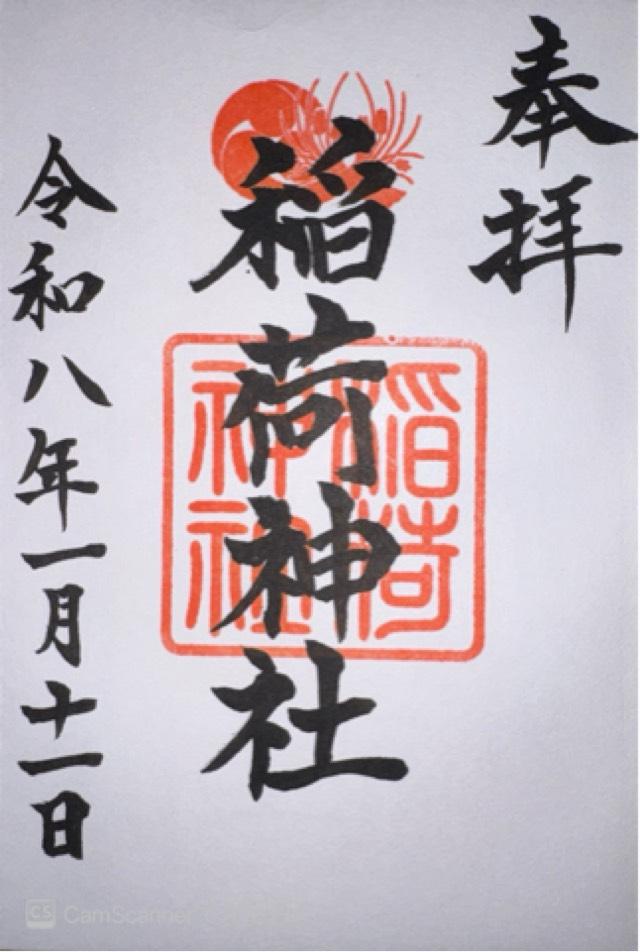 奉拝
稲荷神社
稲荷神社
令和八年一月十一日
CS CamScanner